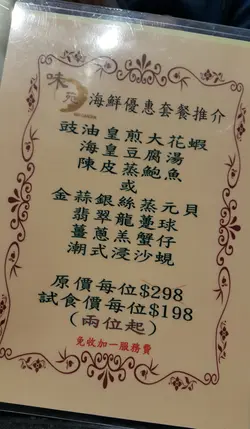 味元
海鮮優惠套餐推介
豉油皇煎大花蝦
海皇豆腐湯
陳皮蒸鮑魚
或
金蒜銀絲蒸元貝
翡翠龍躉球
薑蔥羔蟹仔
潮式浸沙蜆
原價每位$298
試食價每位$198
(兩位起)
免收加一服務費